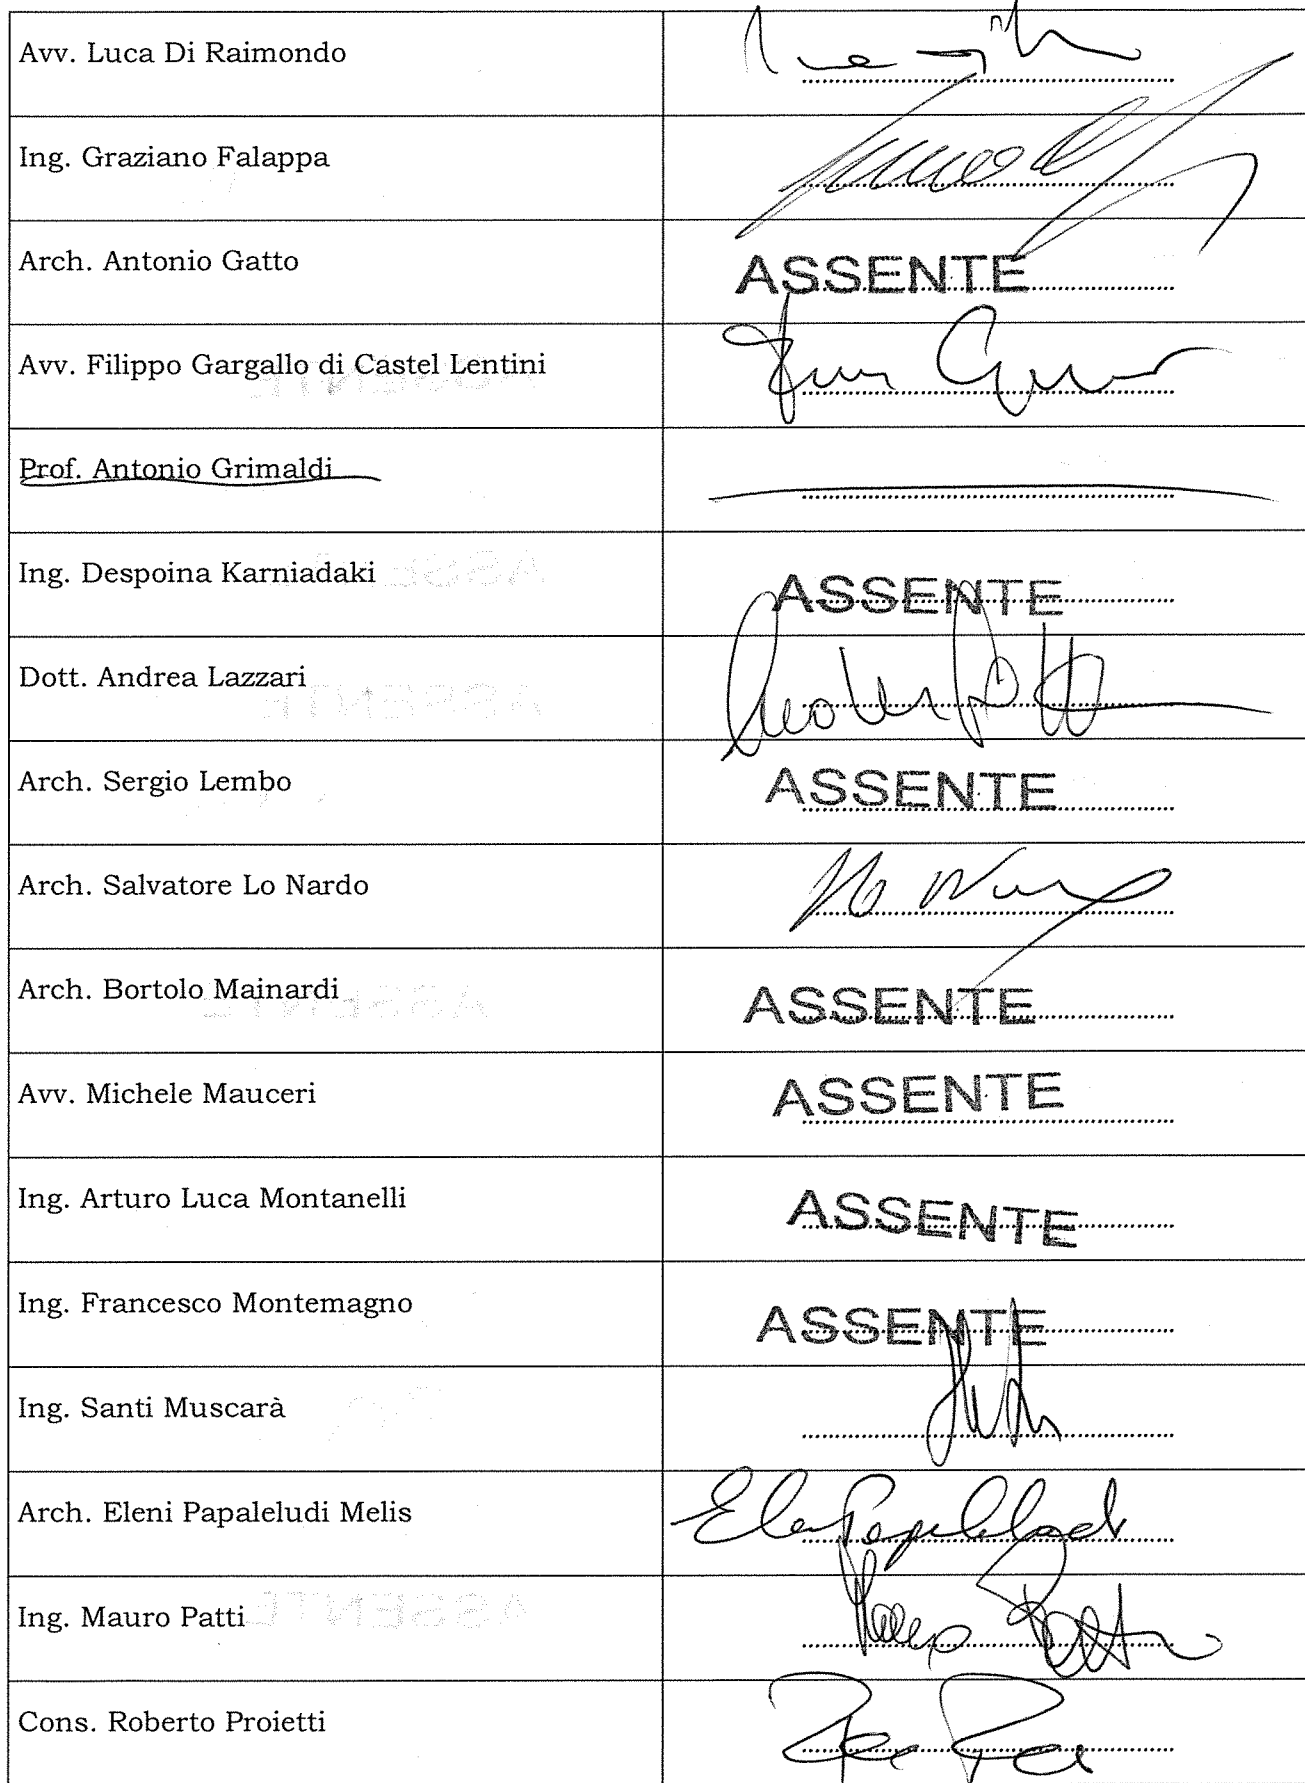 Avv. Luca Di Raimondo
Ing. Graziano Falappa
Arch. Antonio Gatto
ASSENTE
Avv. Filippo Gargallo di Castel Lentini
Prof. Antonio Grimaldi
Ing. Despoina Karniadaki
ASSENTE
Dott. Andrea Lazzari
Arch. Sergio Lembo
ASSENTE
Arch. Salvatore Lo Nardo
Arch. Bortolo Mainardi
ASSENTE
Avv. Michele Mauceri
ASSENTE
Ing. Arturo Luca Montanelli
ASSENTE
Ing. Francesco Montemagno
ASSENTE
Ing. Santi Muscarà
Arch. Eleni Papaleludi Melis
Ing. Mauro Patti
Cons. Roberto Proietti